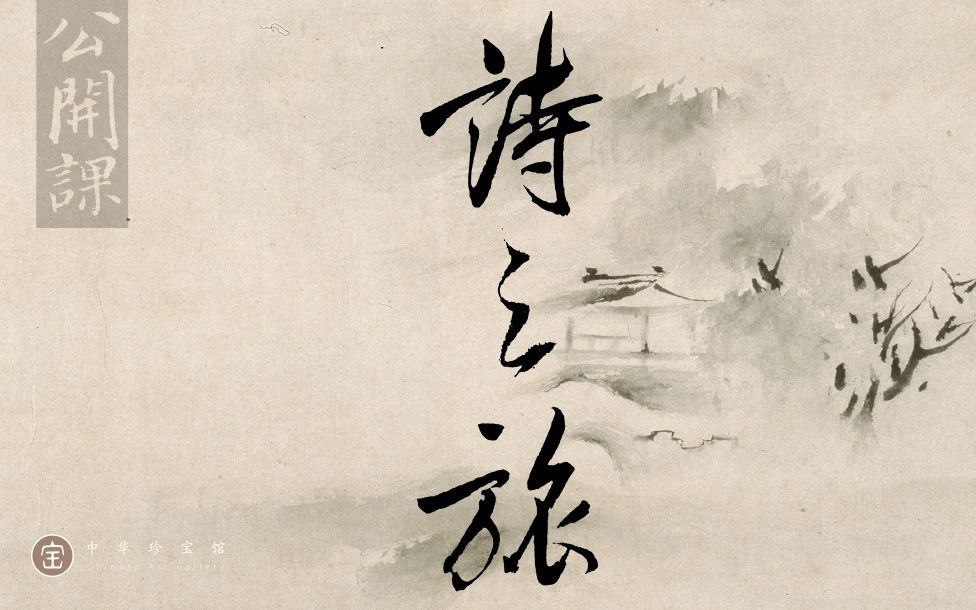 公開課
詩之旅
宝
中华珍宝馆
Chinese Art Gallery